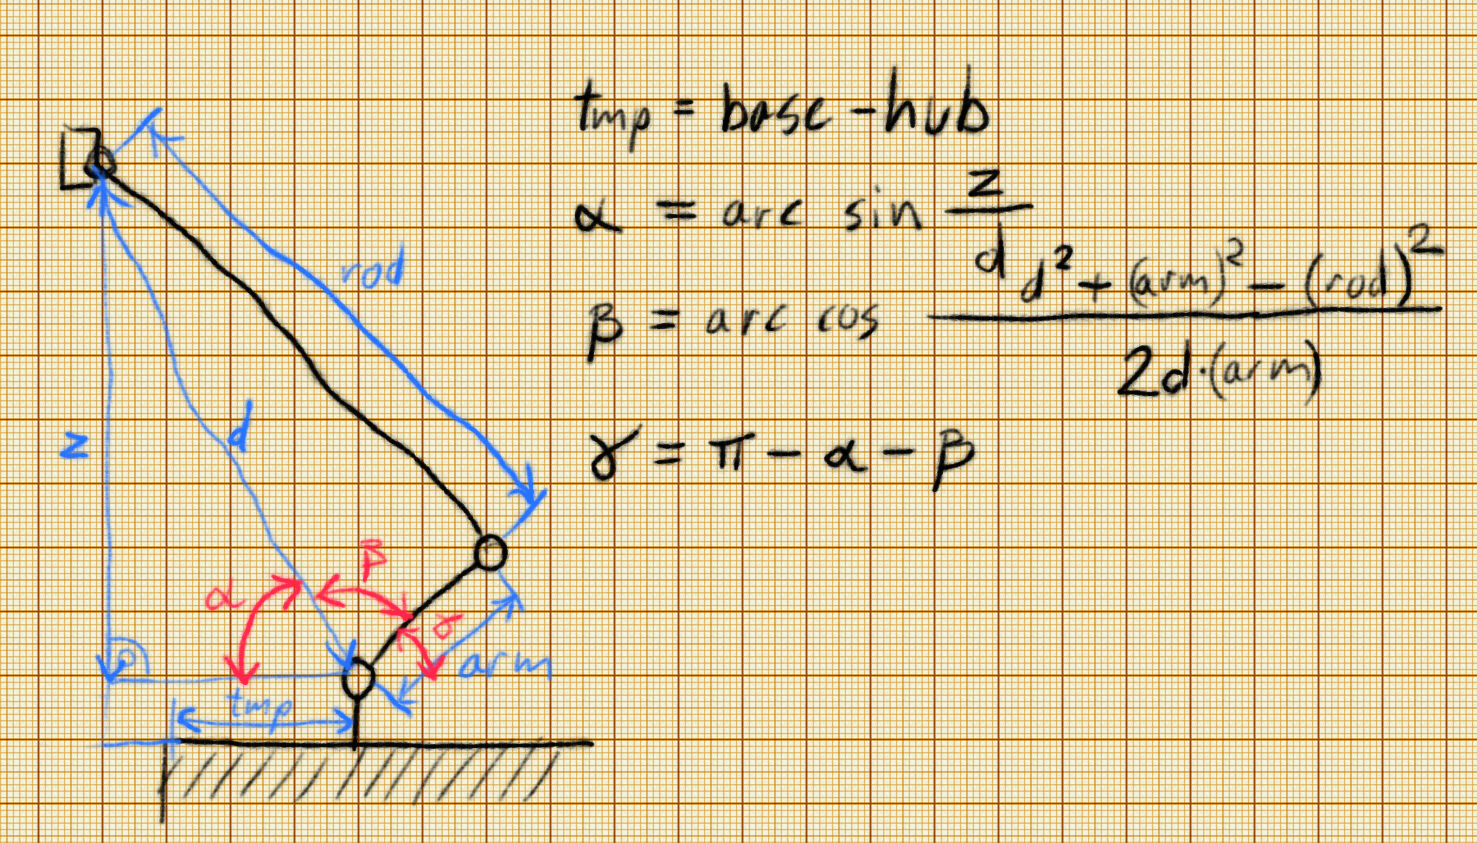 tmp = base - hub
α = arc sin z/d
β = arc cos (d² + (arm)² - (rod)²)/(2d·(arm))
γ = π - α - β
rod
d
z
β
α
γ
arm
tmp